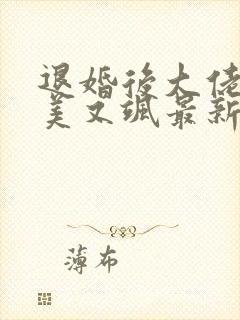 退婚后大佬
美又飒最新
薄布